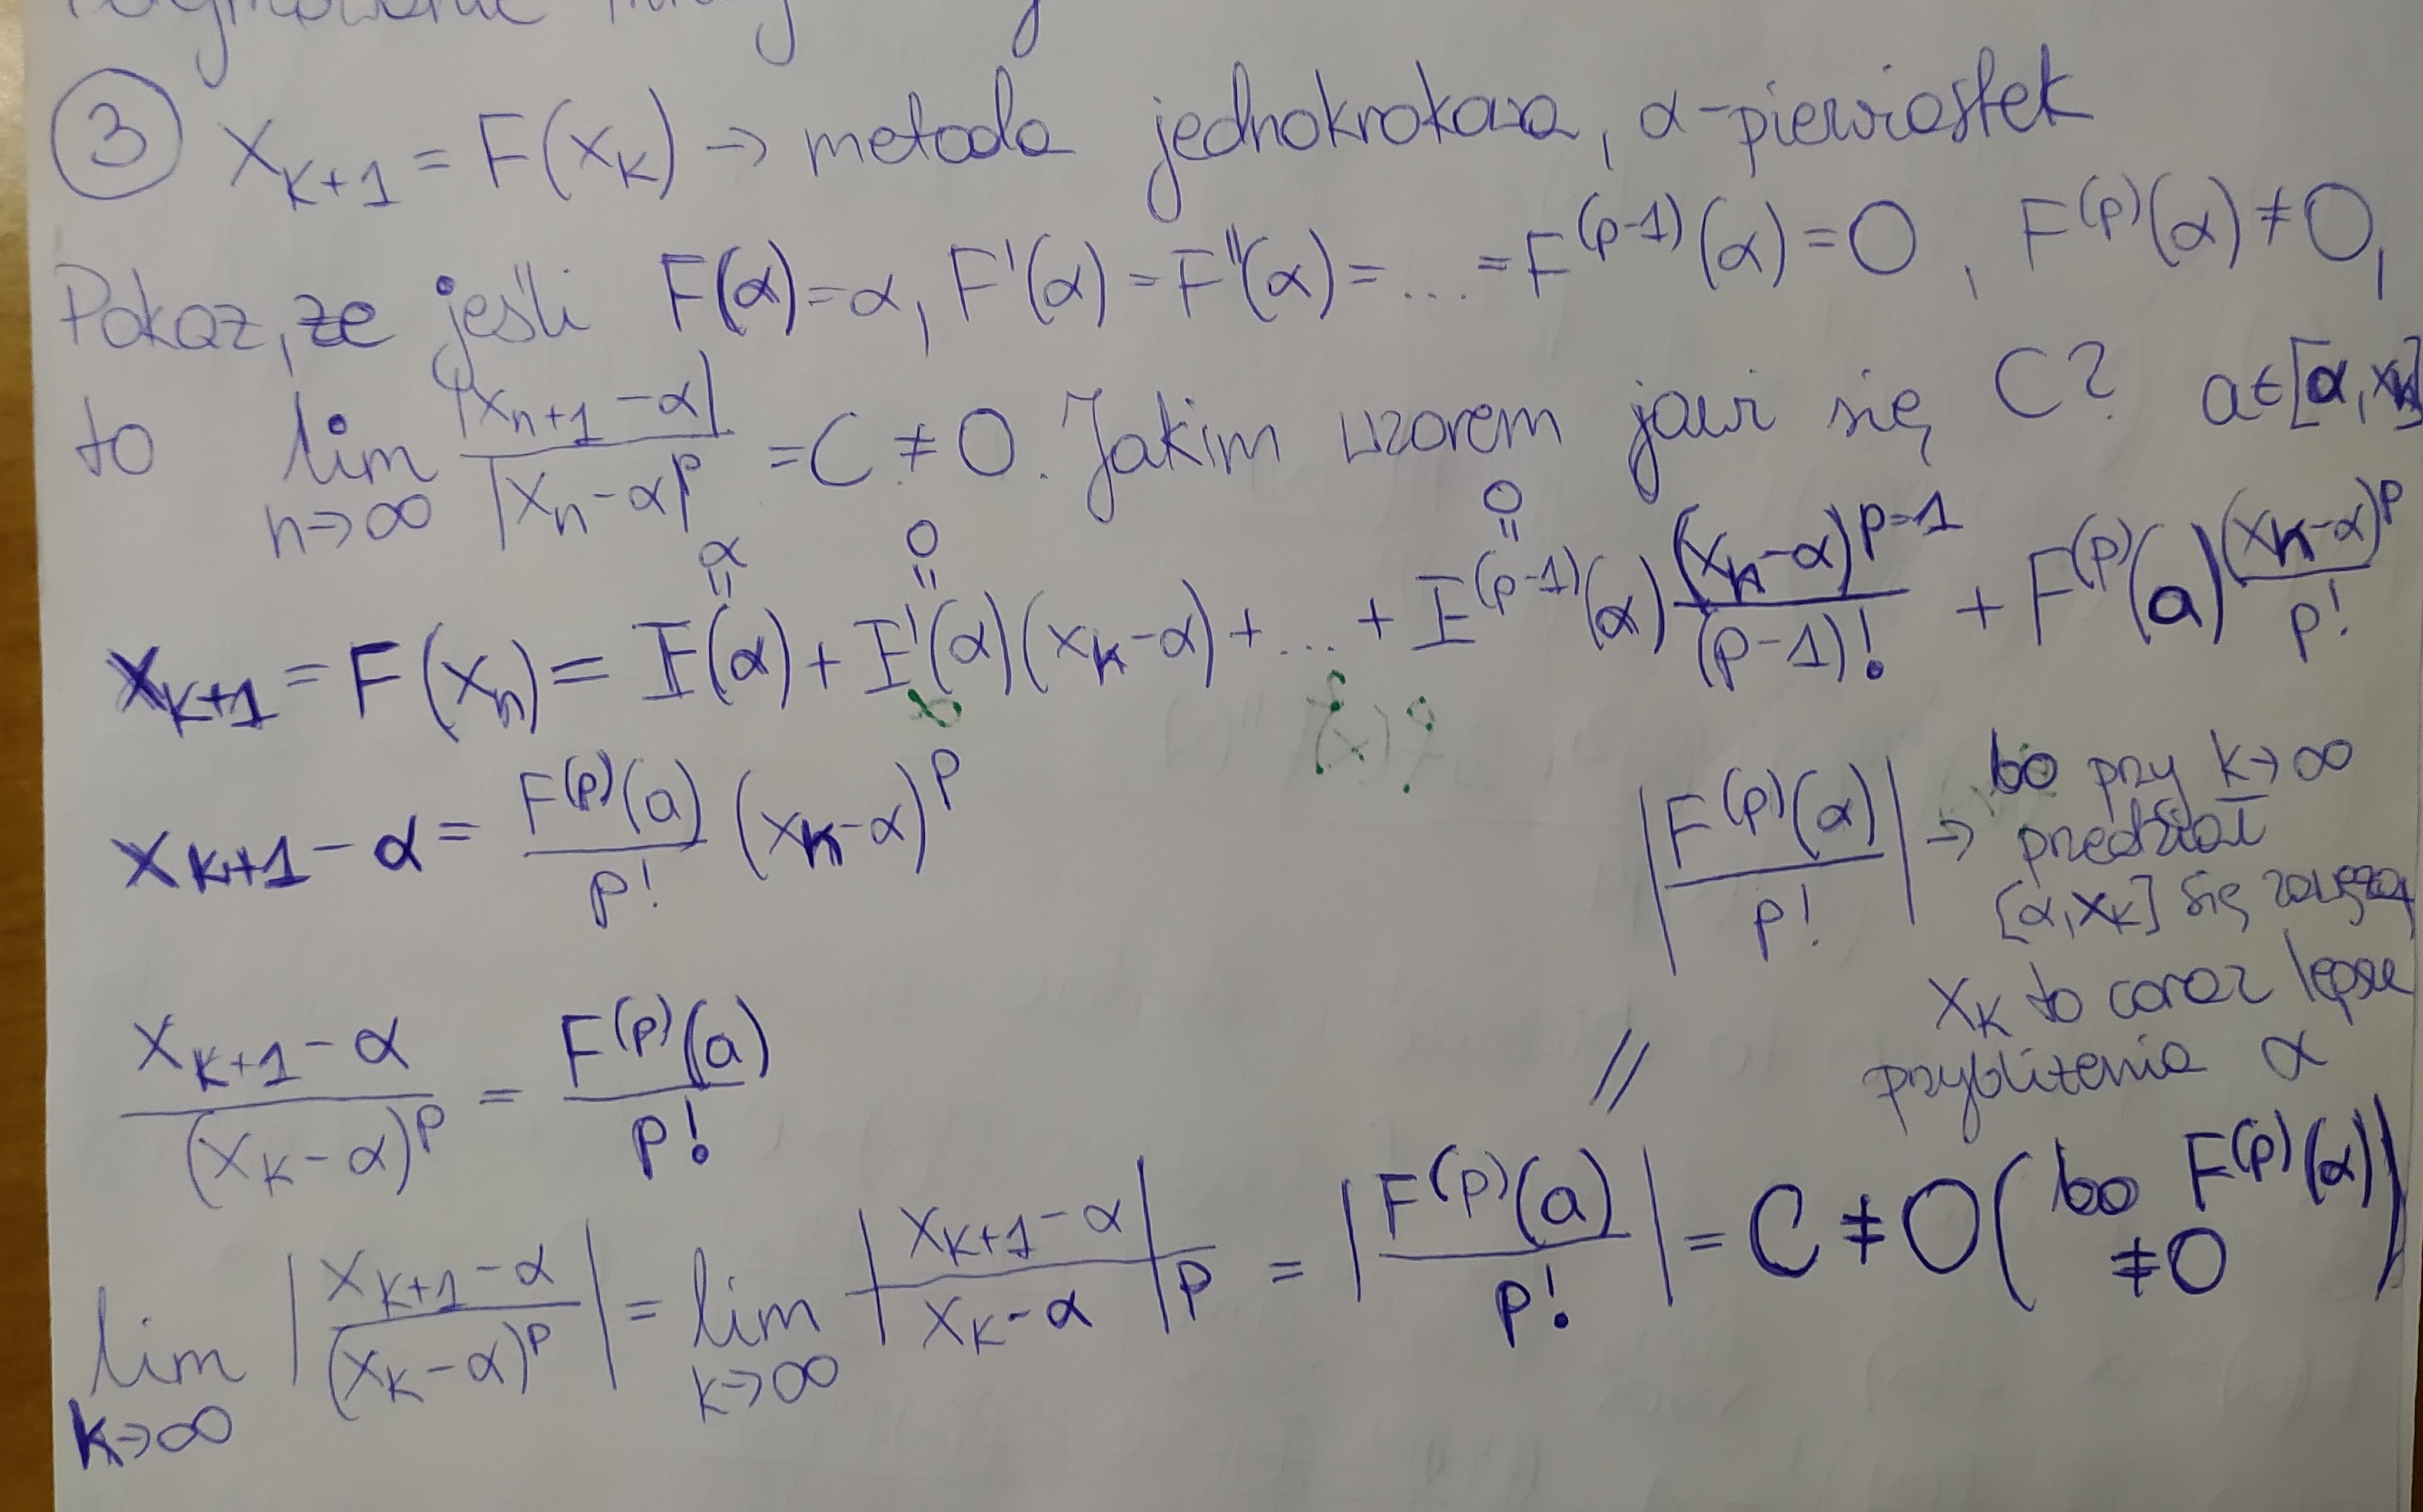 ③ x_{k+1} = F(x_k) → metoda jednokrokowa, α-pierwiastek
Pokaż, że jeśli F(α)=α, F'(α)=F''(α)=...=F^{(p-1)}(α)=0, F^{(p)}(α)≠0,
to lim_{n→∞} |x_{n+1}-α| / |x_n-α|^p = C ≠ 0. Jakim wzorem jawi się C? a∈[α,x_k]
α = 0 = 0 =
x_{k+1} = F(x_n) = F(α) + F'(α)(x_k-α) + ... + F^{(p-1)}(α) (x_n-α)^{p-1} / (p-1)! + F^{(p)}(a) (x_k-α)^p / p!
x_{k+1} - α = F^{(p)}(a) / p! (x_k-α)^p
|F^{(p)}(α) / p!| → bo przy k→∞
przedział
[α,x_k] się
x_k to coraz lepsze
przybliżenia α
(x_{k+1}-α) / (x_k-α)^p = F^{(p)}(a) / p!
//
lim_{k→∞} |(x_{k+1}-α) / (x_k-α)^p| = lim_{k→∞} |x_{k+1}-α| / |x_k-α|^p = |F^{(p)}(a) / p!| = C ≠ 0 (bo F^{(p)}(α) ≠ 0)